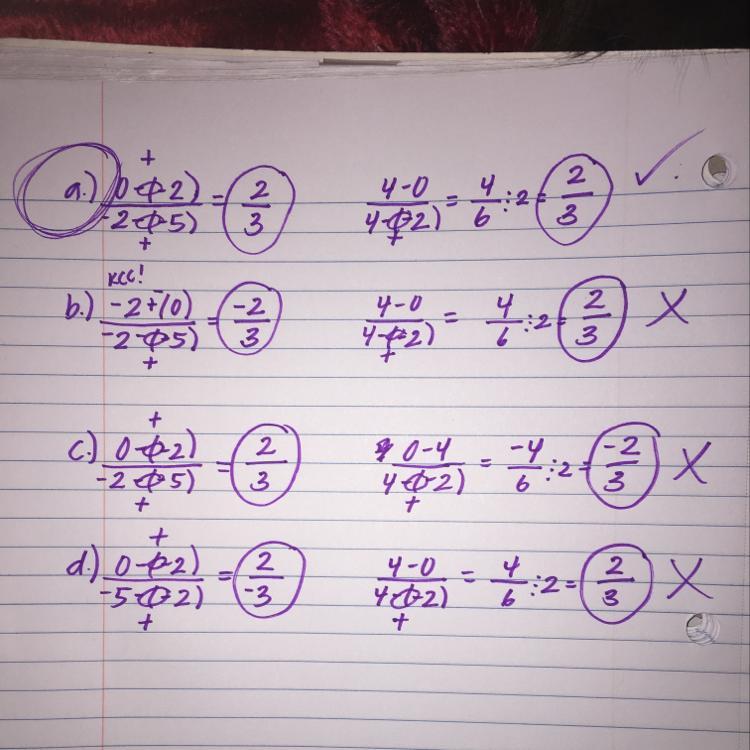 a.) 0-(-2) / -2-(-5) = 2/3    4-0 / 4-(-2) = 4/6 ÷2 = 2/3 ✓
KCC!
b.) -2+-(0) / -2-(-5) = -2/3    4-0 / 4-(-2) = 4/6 ÷2 = 2/3 X
c.) 0-(-2) / -2-(-5) = 2/3    0-4 / 4-(-2) = -4/6 ÷2 = -2/3 X
d.) 0-(-2) / -5-(-2) = 2/-3    4-0 / 4-(-2) = 4/6 ÷2 = 2/3 X